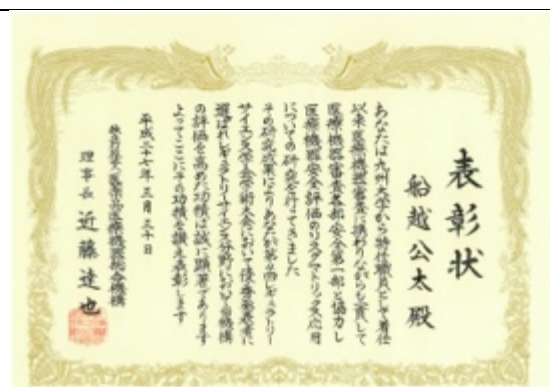 表彰状
船越公太殿
あなたは九州大学から特任職員として着任
以来医療機器審査に携わりながら一貫して
医療機器審査各部安全第一部と協力し
医療機器安全評価のリスクマトリックス応用
についての研究を行ってきました
その研究成果によりあなたが第四回レギュラトリー
サイエンス学会学術大会において優秀発表者に
選ばれレギュラトリーサイエンス分野における当機構
の評価を高めた功績は誠に顕著であります
よってここにその功績を讃え表彰します
平成二十七年三月三十日
独立行政法人医薬品医療機器総合機構
理事長 近藤達也